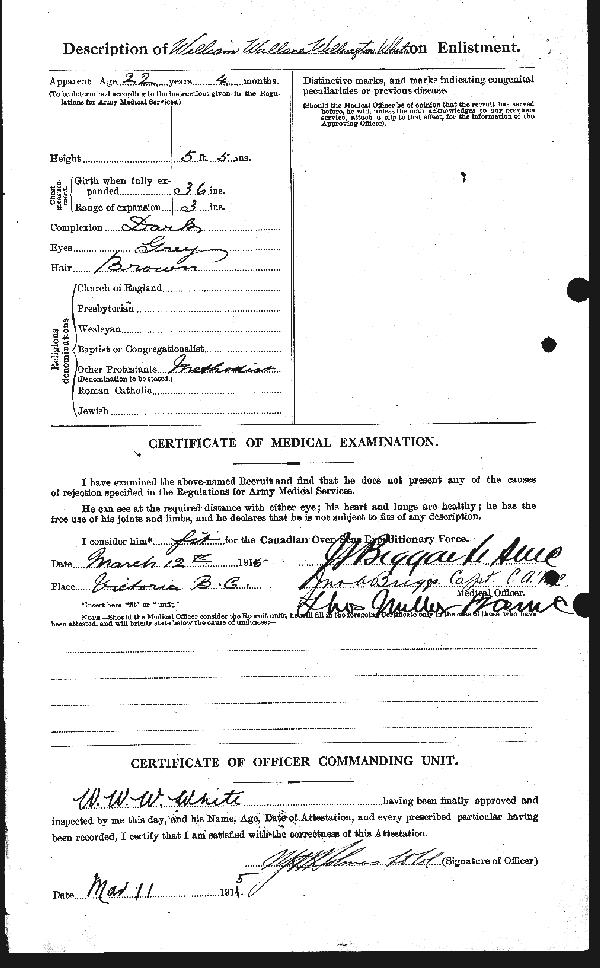 Description of William Wallace Wellington White on Enlistment.
Apparent Age 22 years 4 months.
(To be determined according to the instructions given in the Regulations for Army Medical Services.)
Height 5 ft. 5 ins.
Chest measurement.
Girth when fully expanded 36 ins.
Range of expansion 3 ins.
Complexion Dark
Eyes Grey
Hair Brown
Religious denominations.
Church of England
Presbyterian
Wesleyan
Baptist or Congregationalist
Other Protestants Methodist
(Denomination to be stated.)
Roman Catholic
Jewish
Distinctive marks, and marks indicating congenital
peculiarities or previous disease.
(Should the Medical Officer be of opinion that the recruit has served
before, he will, unless the man acknowledges to any previous
service, attach a slip to that effect, for the information of the
Approving Officer).
CERTIFICATE OF MEDICAL EXAMINATION.
I have examined the above-named Recruit and find that he does not present any of the causes
of rejection specified in the Regulations for Army Medical Services.
He can see at the required distance with either eye; his heart and lungs are healthy; he has the
free use of his joints and limbs, and he declares that he is not subject to fits of any description.
I consider him* fit for the Canadian Over-Seas Expeditionary Force.
Date March 12th 1915
Place Victoria B.C.
Capt C.A.M.C
Medical Officer.
Thos Miller
*Insert here "fit" or "unfit."
NOTE.—Should the Medical Officer consider the Recruit unfit, he will fill in the foregoing Certificate only in the case of those who have
been attested, and will briefly state below the cause of unfitness:—
CERTIFICATE OF OFFICER COMMANDING UNIT.
W. W. W. White having been finally approved and
inspected by me this day, and his Name, Age, Date of Attestation, and every prescribed particular having
been recorded, I certify that I am satisfied with the correctness of this Attestation.
(Signature of Officer)
Date Mar 11 1915